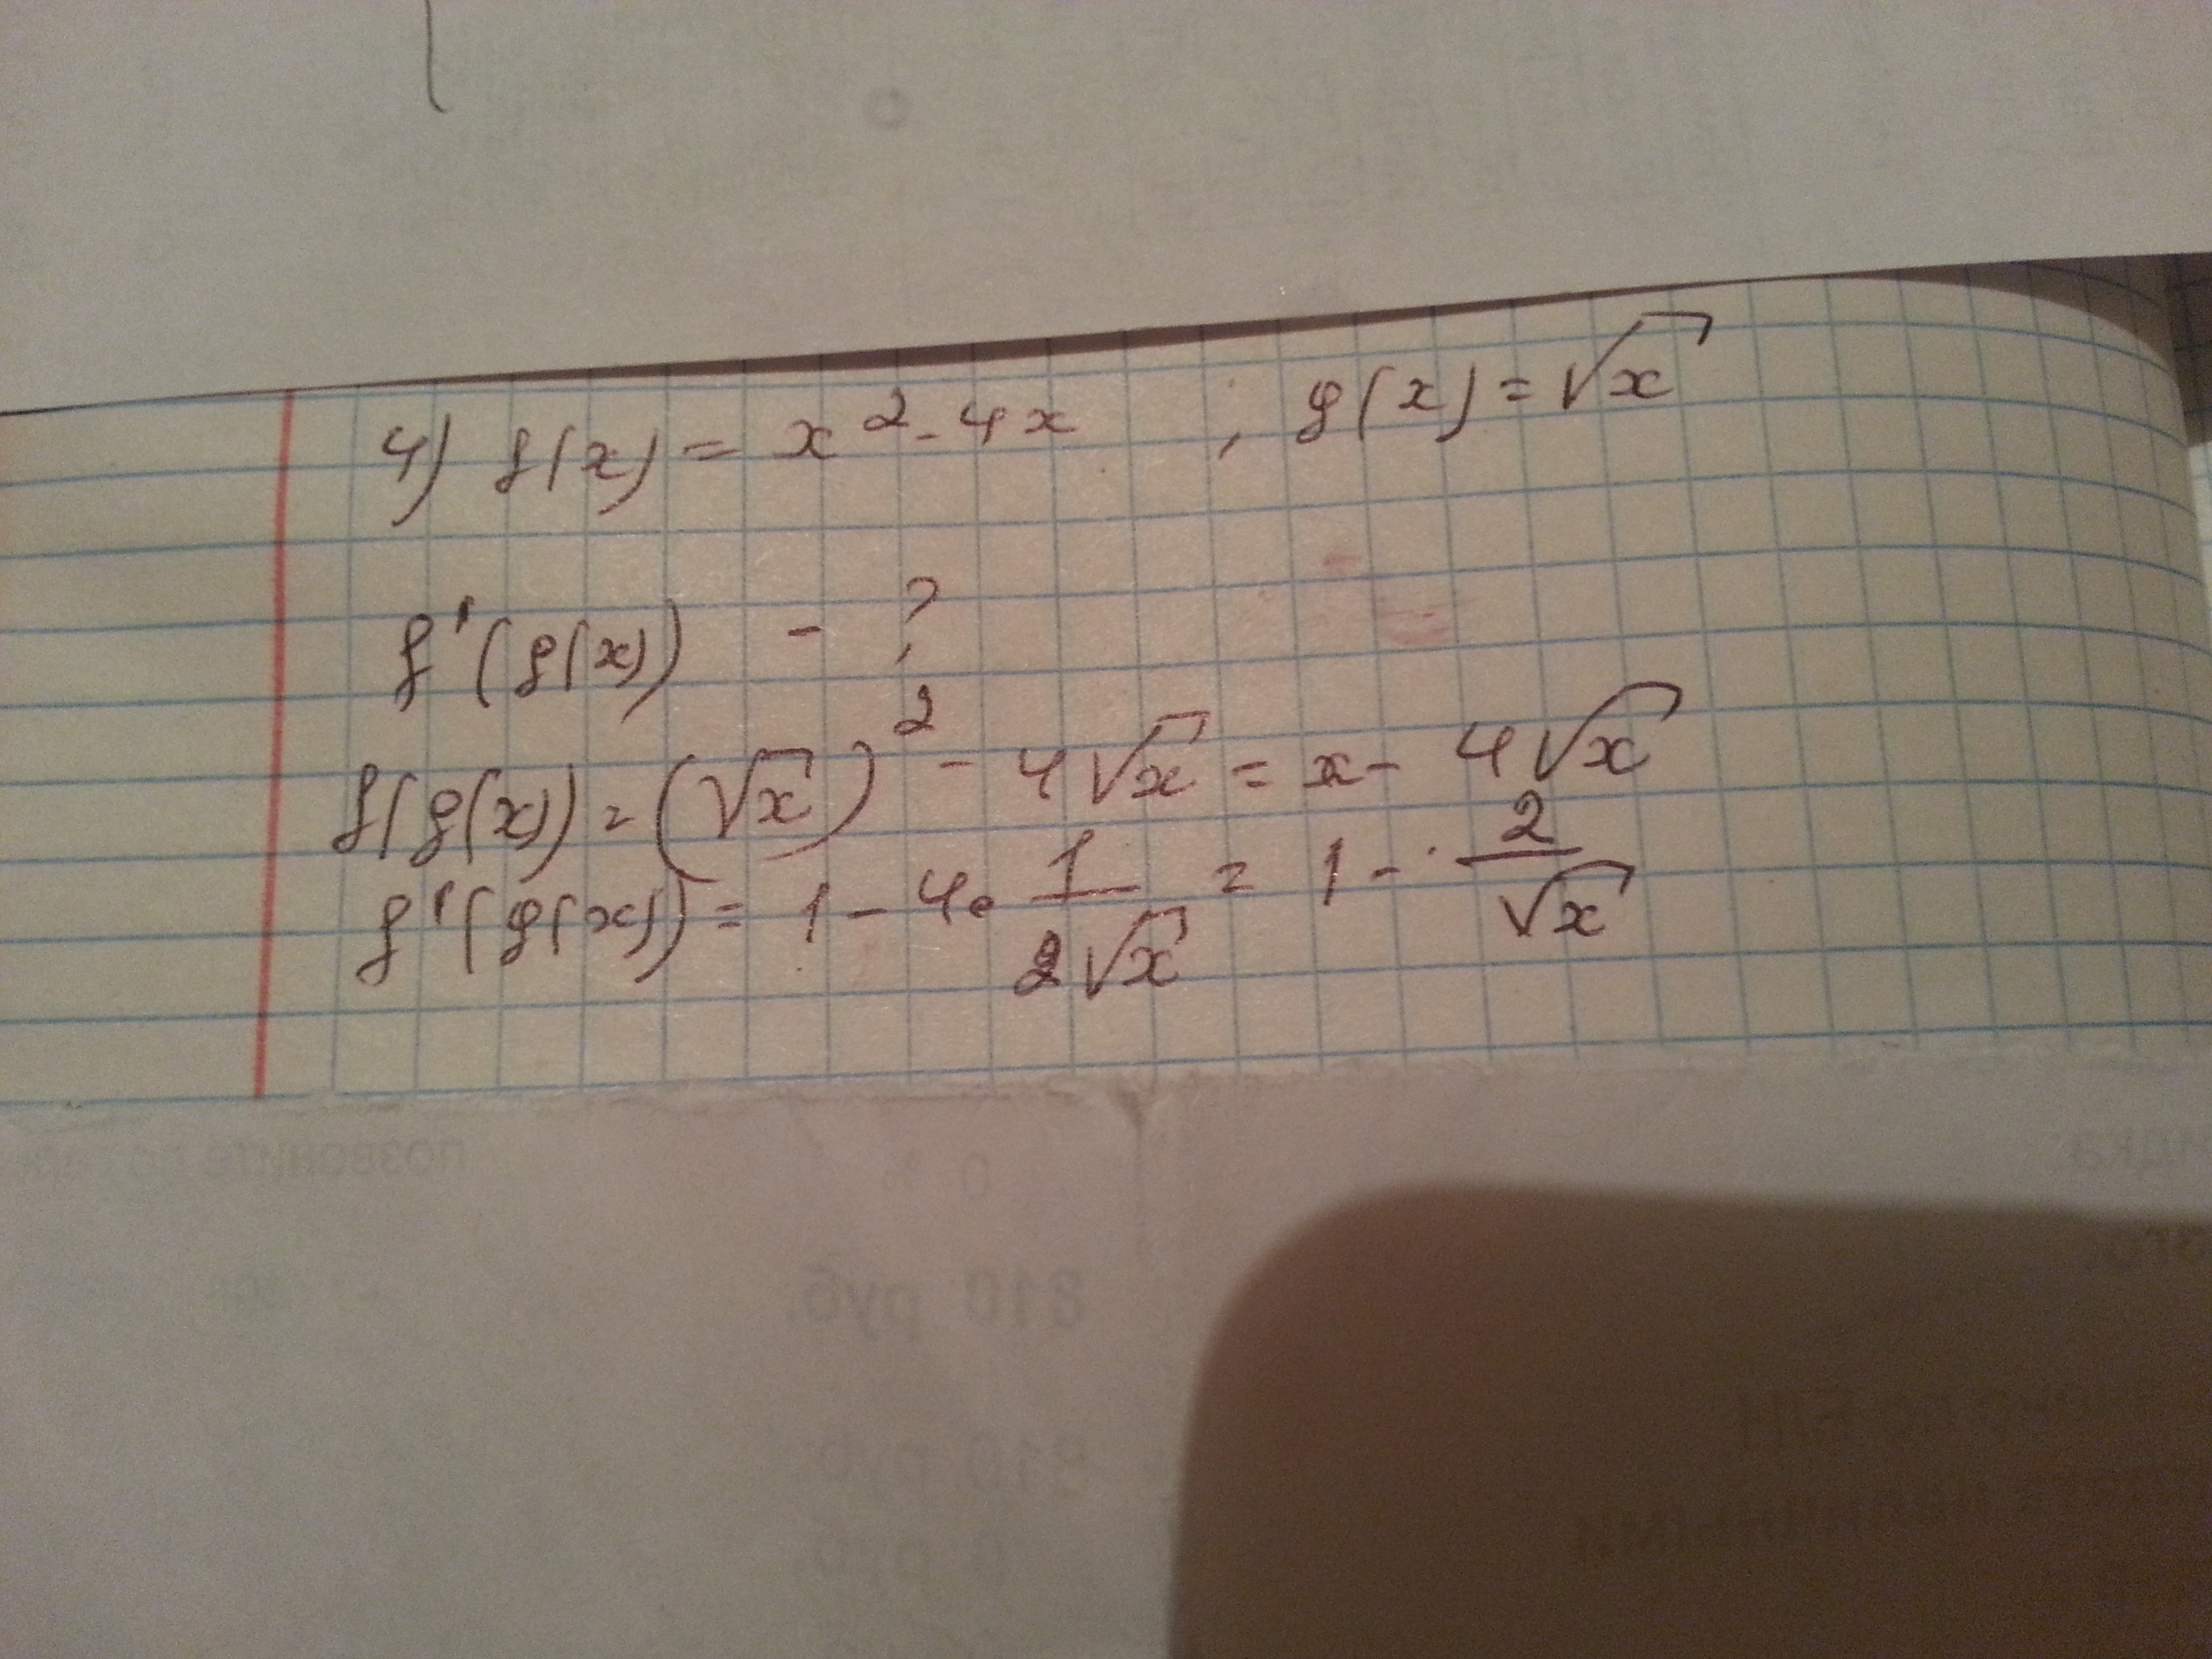 4) f(x) = x² - 4x ; g(x) = √x
f'(g(x)) - ?
f(g(x)) = (√x)² - 4√x = x - 4√x
f'(g(x)) = 1 - 4 · 1/(2√x) = 1 - 2/√x
позвоните по
0 %
810 руб.
810 руб
0 руб.